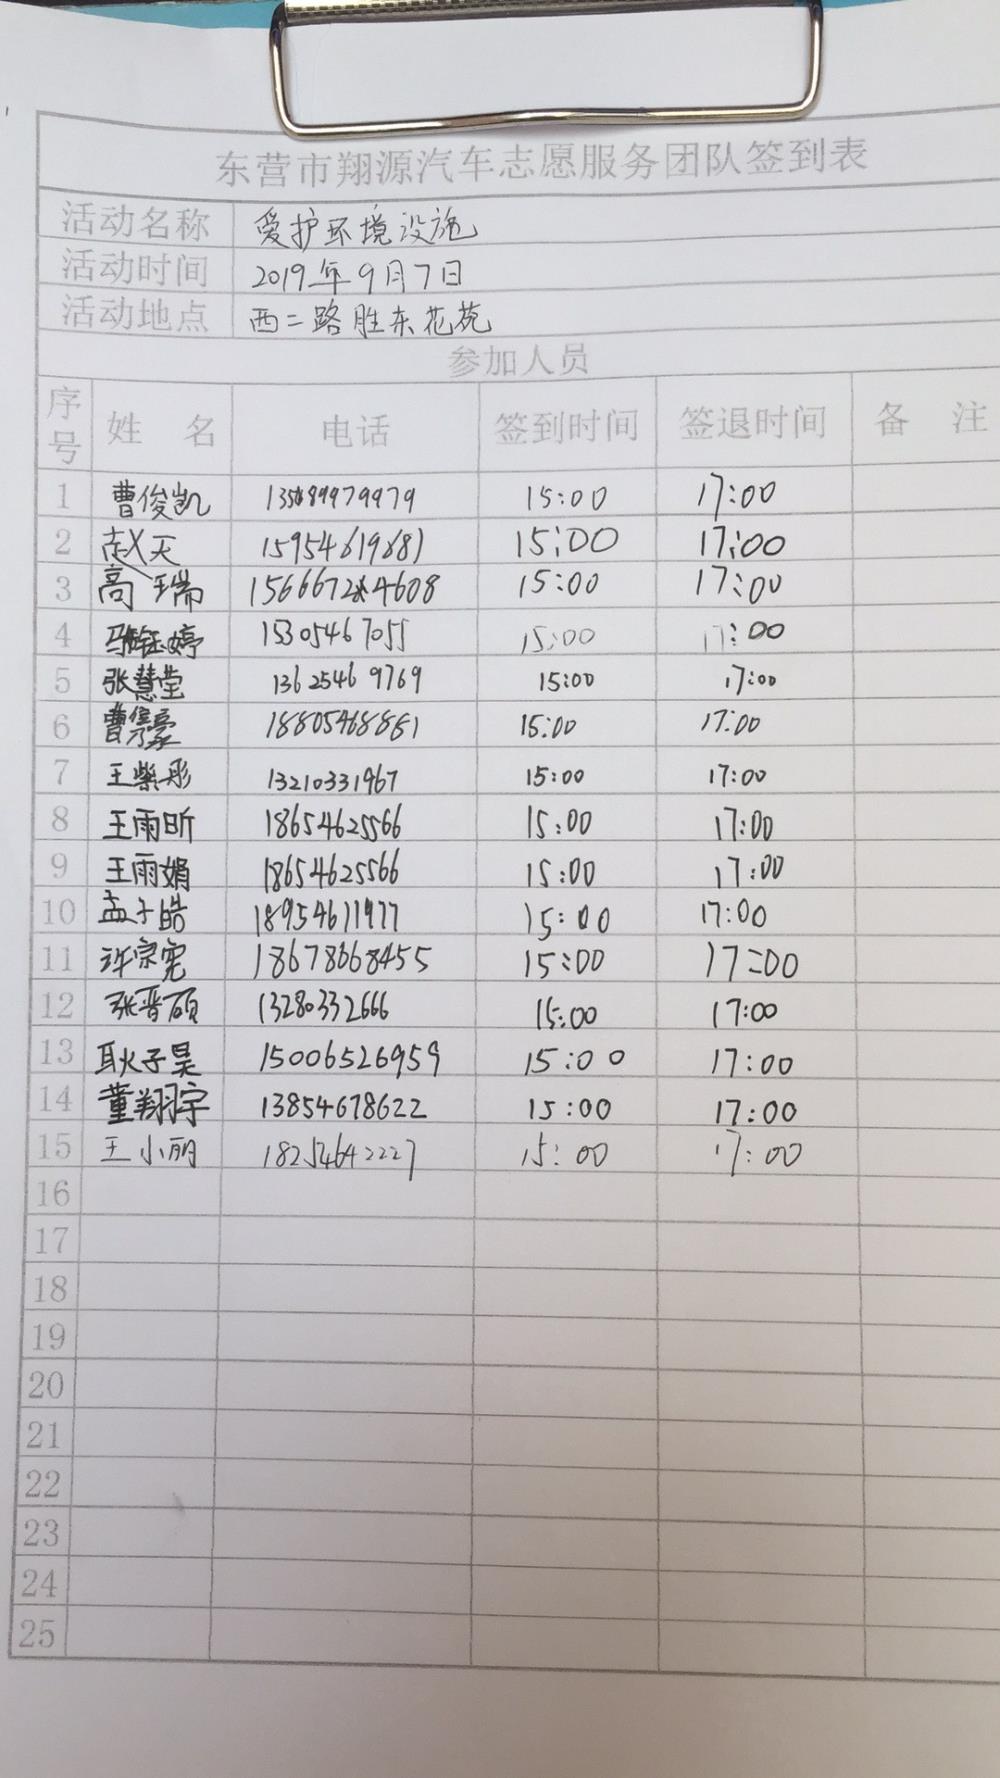 东营市翔源汽车志愿服务团队签到表
活动名称 爱护环境设施
活动时间 2019年9月7日
活动地点 西二路胜东花苑
参加人员
序号 姓名 电话 签到时间 签退时间 备注
1 曹俊凯 15:00 17:00
2 赵天 15954619681 15:00 17:00
3 高瑞 15:00 17:00
4 15305467055 15:00 17:00
5 张慧莹 13625469769 15:00 17:00
6 18805468861 15:00 17:00
7 王紫彤 13210331967 15:00 17:00
8 王雨昕 18654625566 15:00 17:00
9 王雨娟 18654625566 15:00 17:00
10 孟子皓 18954611977 15:00 17:00
11 许宗宪 18678668455 15:00 17:00
12 张晋硕 13280332666 15:00 17:00
13 耿子昊 15006526959 15:00 17:00
14 董翔宇 13854678622 15:00 17:00
15 王小丽 18254642227 15:00 17:00
16
17
18
19
20
21
22
23
24
25